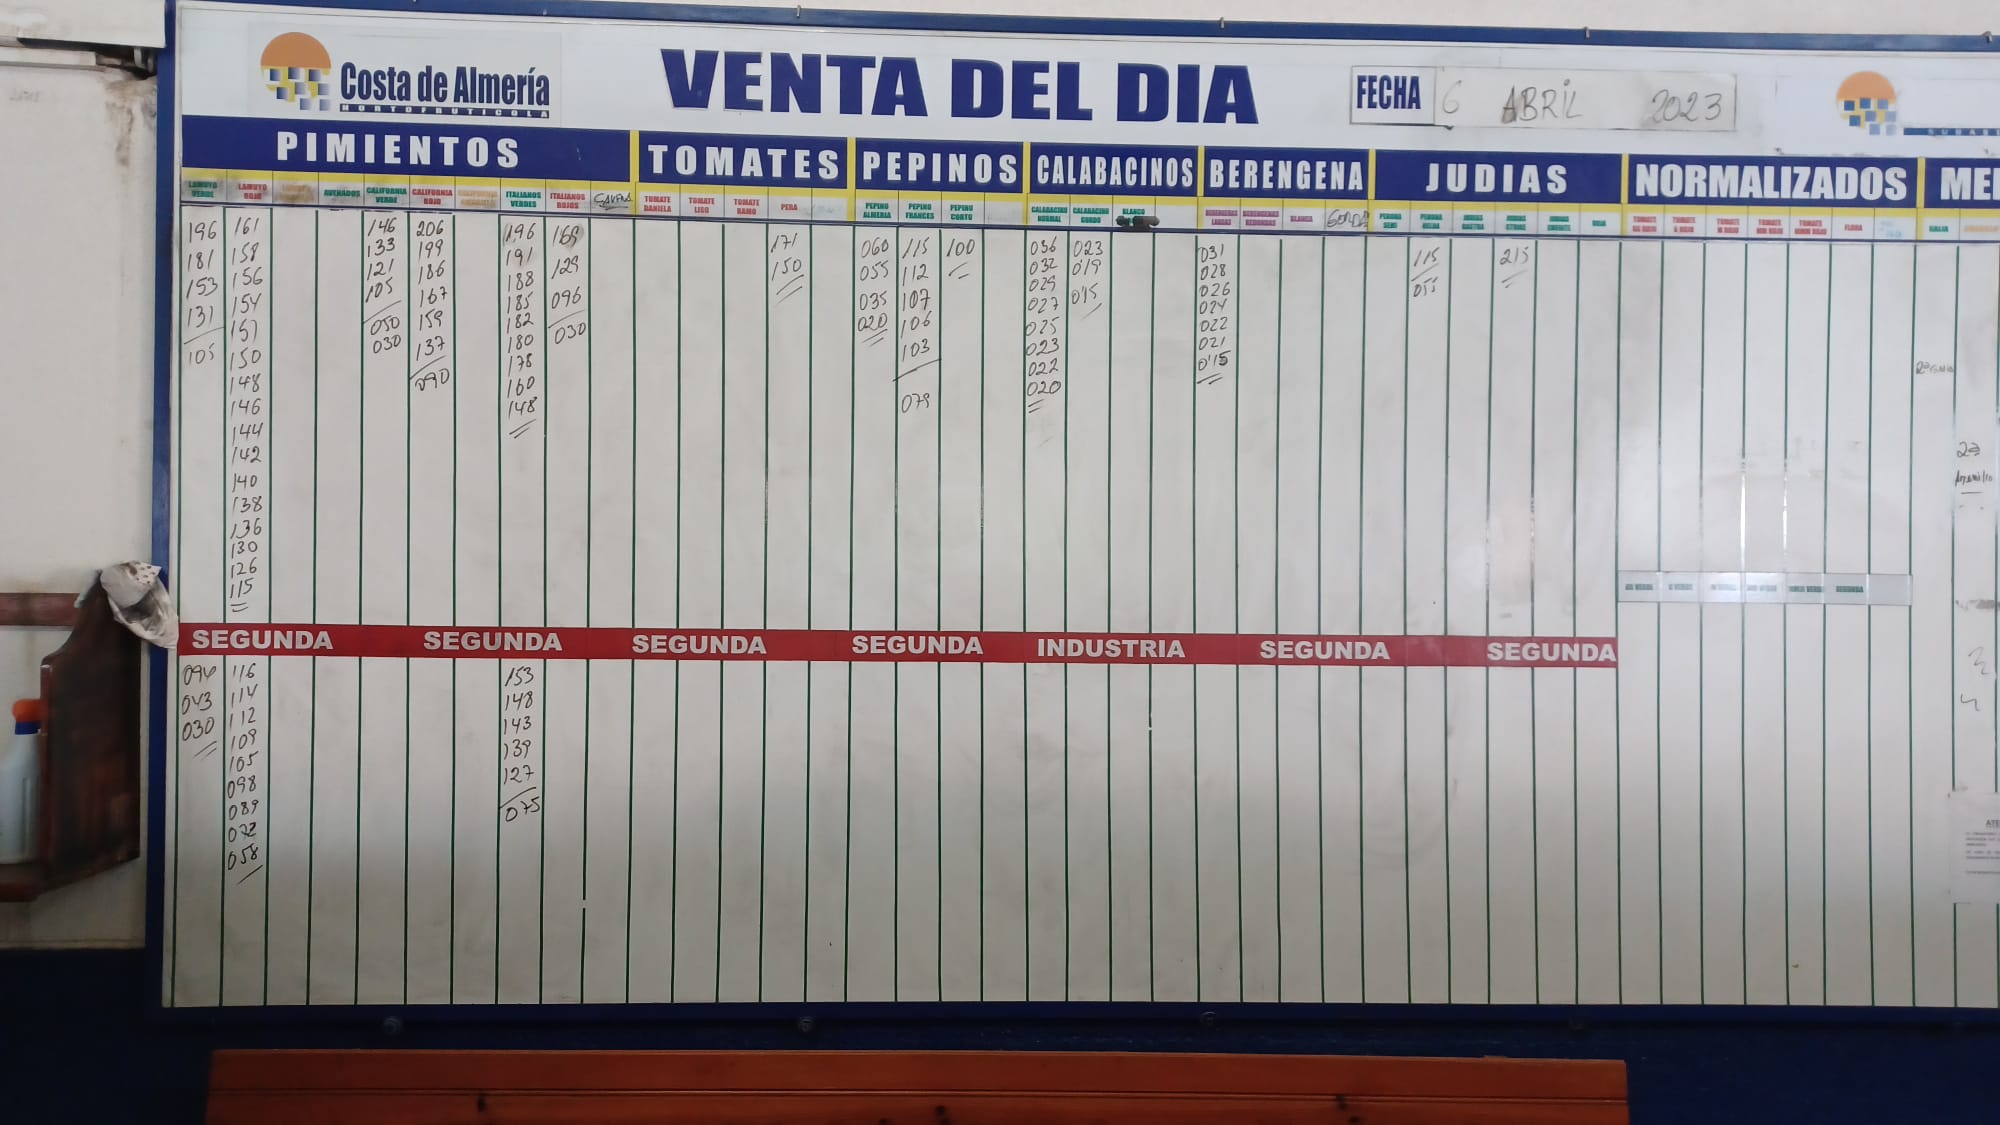 Costa de Almería
HORTOFRUTICOLA
VENTA DEL DIA
FECHA 6 ABRIL 2023
PIMIENTOS
TOMATES
PEPINOS
CALABACINOS
BERENGENA
JUDIAS
NORMALIZADOS
LAMUYO VERDE
LAMUYO ROJO
CALIFORNIA VERDE
CALIFORNIA ROJO
ITALIANOS VERDES
ITALIANOS ROJOS
TOMATE DANIELA
TOMATE LISO
TOMATE RAMO
PERA
PEPINO ALMERIA
PEPINO FRANCES
PEPINO CORTO
CALABACINO NORMAL
CALABACINO GORDO
BLANCO
BERENGENAS LARGAS
BERENGENAS REDONDAS
BLANCA
GORDA
196
181
153
131
105
161
158
156
154
151
150
148
146
144
142
140
138
136
130
126
115
146
133
121
105
050
030
206
199
186
167
159
137
090
196
191
188
185
182
180
178
160
148
169
129
096
030
171
150
060
055
035
020
115
112
107
106
103
079
100
036
032
029
027
025
023
022
020
023
0'19
0'15
031
028
026
024
022
021
0'15
115
055
215
SEGUNDA
SEGUNDA
SEGUNDA
SEGUNDA
INDUSTRIA
SEGUNDA
SEGUNDA
094
043
030
116
114
112
109
105
098
089
072
058
153
148
143
139
127
075